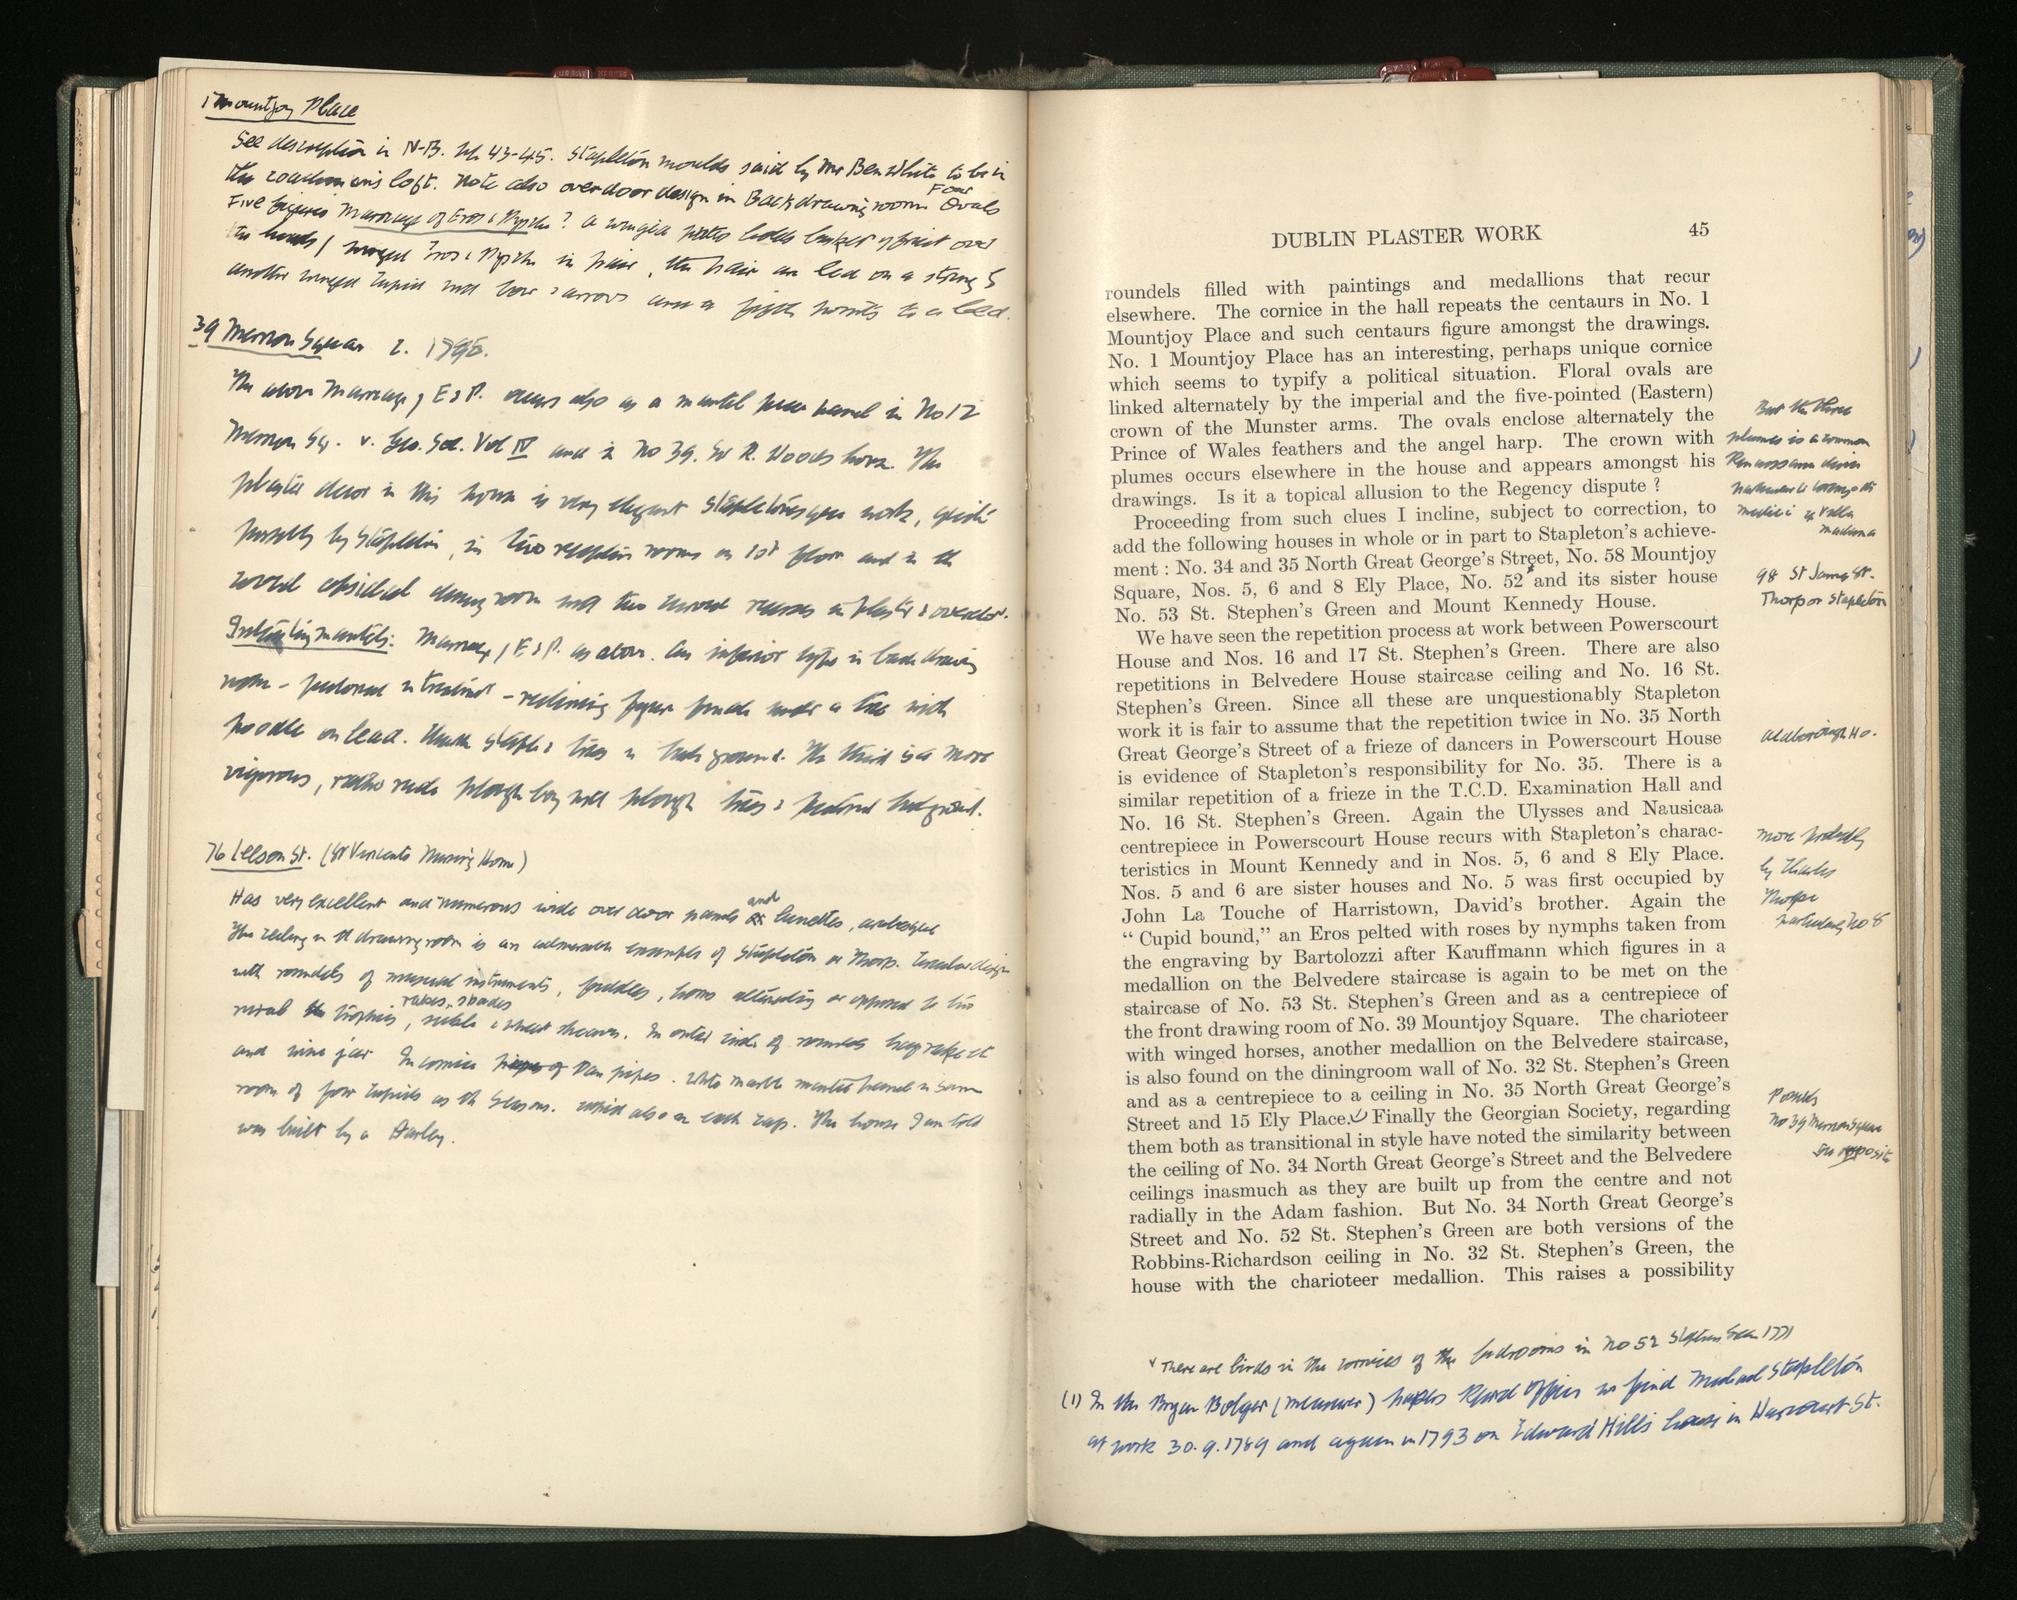 1 Mountjoy Place
See description in N-B. pp. 43-45. Stapleton moulds said by Mr Ben White to be in
the coachman's loft. Note also overdoor design in Back drawing room Four Ovals
Five figures Marriage of Eros & Psyche? A winged putto holds basket of fruit over
the heads / winged Eros & Psyche in pair, the pair are led on a string &
another winged Cupid with bow & arrows and a fifth points to a bed.
39 Merrion Square c. 1795.
The above Marriage of E & P. occurs also as a mantel piece panel in No 12
Merrion Sq. v. Geo. Soc. Vol IV and in No 39. Sir R. Woods house. The
plaster decor in this house is very elegant Stapletonesque work,
possibly by Stapleton, in two reception rooms on 1st floor and in the
dining room with two recesses in plaster & overdoor.
Interesting mantels: Marriage of E & P. as above. An inferior type in back drawing
room - pastoral - reclining figure female under a tree with
poodle on lead. trees in background. The third is a more
vigorous, rather rude plough boy with plough trees & pastoral background.
76 Leeson St. (St Vincents Nursing Home)
Has very excellent and numerous wide over door panels and lunettes, arabesque
The ceiling in the drawing room is an admirable example of Stapleton or Thorp. Circular design
with roundels of musical instruments, fiddles, horns alternating or opposed to two
rural trophies, rakes, spades, sickle & wheat sheaves. In outer circle of roundels hay rake &c
and wine jar. In cornice Pan pipes. White marble mantel panel in same
room of four Cupids as the Seasons. Cupid also on each cap. The house I am told
was built by a Harley.
DUBLIN PLASTER WORK 45
roundels filled with paintings and medallions that recur
elsewhere. The cornice in the hall repeats the centaurs in No. 1
Mountjoy Place and such centaurs figure amongst the drawings.
No. 1 Mountjoy Place has an interesting, perhaps unique cornice
which seems to typify a political situation. Floral ovals are
linked alternately by the imperial and the five-pointed (Eastern)
crown of the Munster arms. The ovals enclose alternately the
Prince of Wales feathers and the angel harp. The crown with
plumes occurs elsewhere in the house and appears amongst his
drawings. Is it a topical allusion to the Regency dispute ?
But the three
plumes is a common
Renaissance device
particular to Lorenzo di
Medici cf Villa
Madama
Proceeding from such clues I incline, subject to correction, to
add the following houses in whole or in part to Stapleton's achieve-
ment : No. 34 and 35 North Great George's Street, No. 58 Mountjoy
Square, Nos. 5, 6 and 8 Ely Place, No. 52 and its sister house
No. 53 St. Stephen's Green and Mount Kennedy House.
98 St James St.
Thorp or Stapleton
We have seen the repetition process at work between Powerscourt
House and Nos. 16 and 17 St. Stephen's Green. There are also
repetitions in Belvedere House staircase ceiling and No. 16 St.
Stephen's Green. Since all these are unquestionably Stapleton
work it is fair to assume that the repetition twice in No. 35 North
Great George's Street of a frieze of dancers in Powerscourt House
is evidence of Stapleton's responsibility for No. 35. There is a
similar repetition of a frieze in the T.C.D. Examination Hall and
No. 16 St. Stephen's Green. Again the Ulysses and Nausicaa
centrepiece in Powerscourt House recurs with Stapleton's charac-
teristics in Mount Kennedy and in Nos. 5, 6 and 8 Ely Place.
Nos. 5 and 6 are sister houses and No. 5 was first occupied by
John La Touche of Harristown, David's brother. Again the
“ Cupid bound,” an Eros pelted with roses by nymphs taken from
the engraving by Bartolozzi after Kauffmann which figures in a
medallion on the Belvedere staircase is again to be met on the
staircase of No. 53 St. Stephen's Green and as a centrepiece of
the front drawing room of No. 39 Mountjoy Square. The charioteer
with winged horses, another medallion on the Belvedere staircase,
is also found on the diningroom wall of No. 32 St. Stephen's Green
and as a centrepiece to a ceiling in No. 35 North Great George's
Street and 15 Ely Place. Finally the Georgian Society, regarding
them both as transitional in style have noted the similarity between
the ceiling of No. 34 North Great George's Street and the Belvedere
ceilings inasmuch as they are built up from the centre and not
radially in the Adam fashion. But No. 34 North Great George's
Street and No. 52 St. Stephen's Green are both versions of the
Robbins-Richardson ceiling in No. 32 St. Stephen's Green, the
house with the charioteer medallion. This raises a possibility
Aldborough Ho.
more probably
by Charles
Thorpe
particularly No 8
Possibly
No 39 Merrion Square
See opposite
There are birds in the cornices of the bedrooms in No 52 Stephens Green 1771
(1) In the Bryan Bolger (measurer) papers Record Office we find Michael Stapleton
at work 30.9.1789 and again in 1793 on Edward Hill's house in Harcourt St.